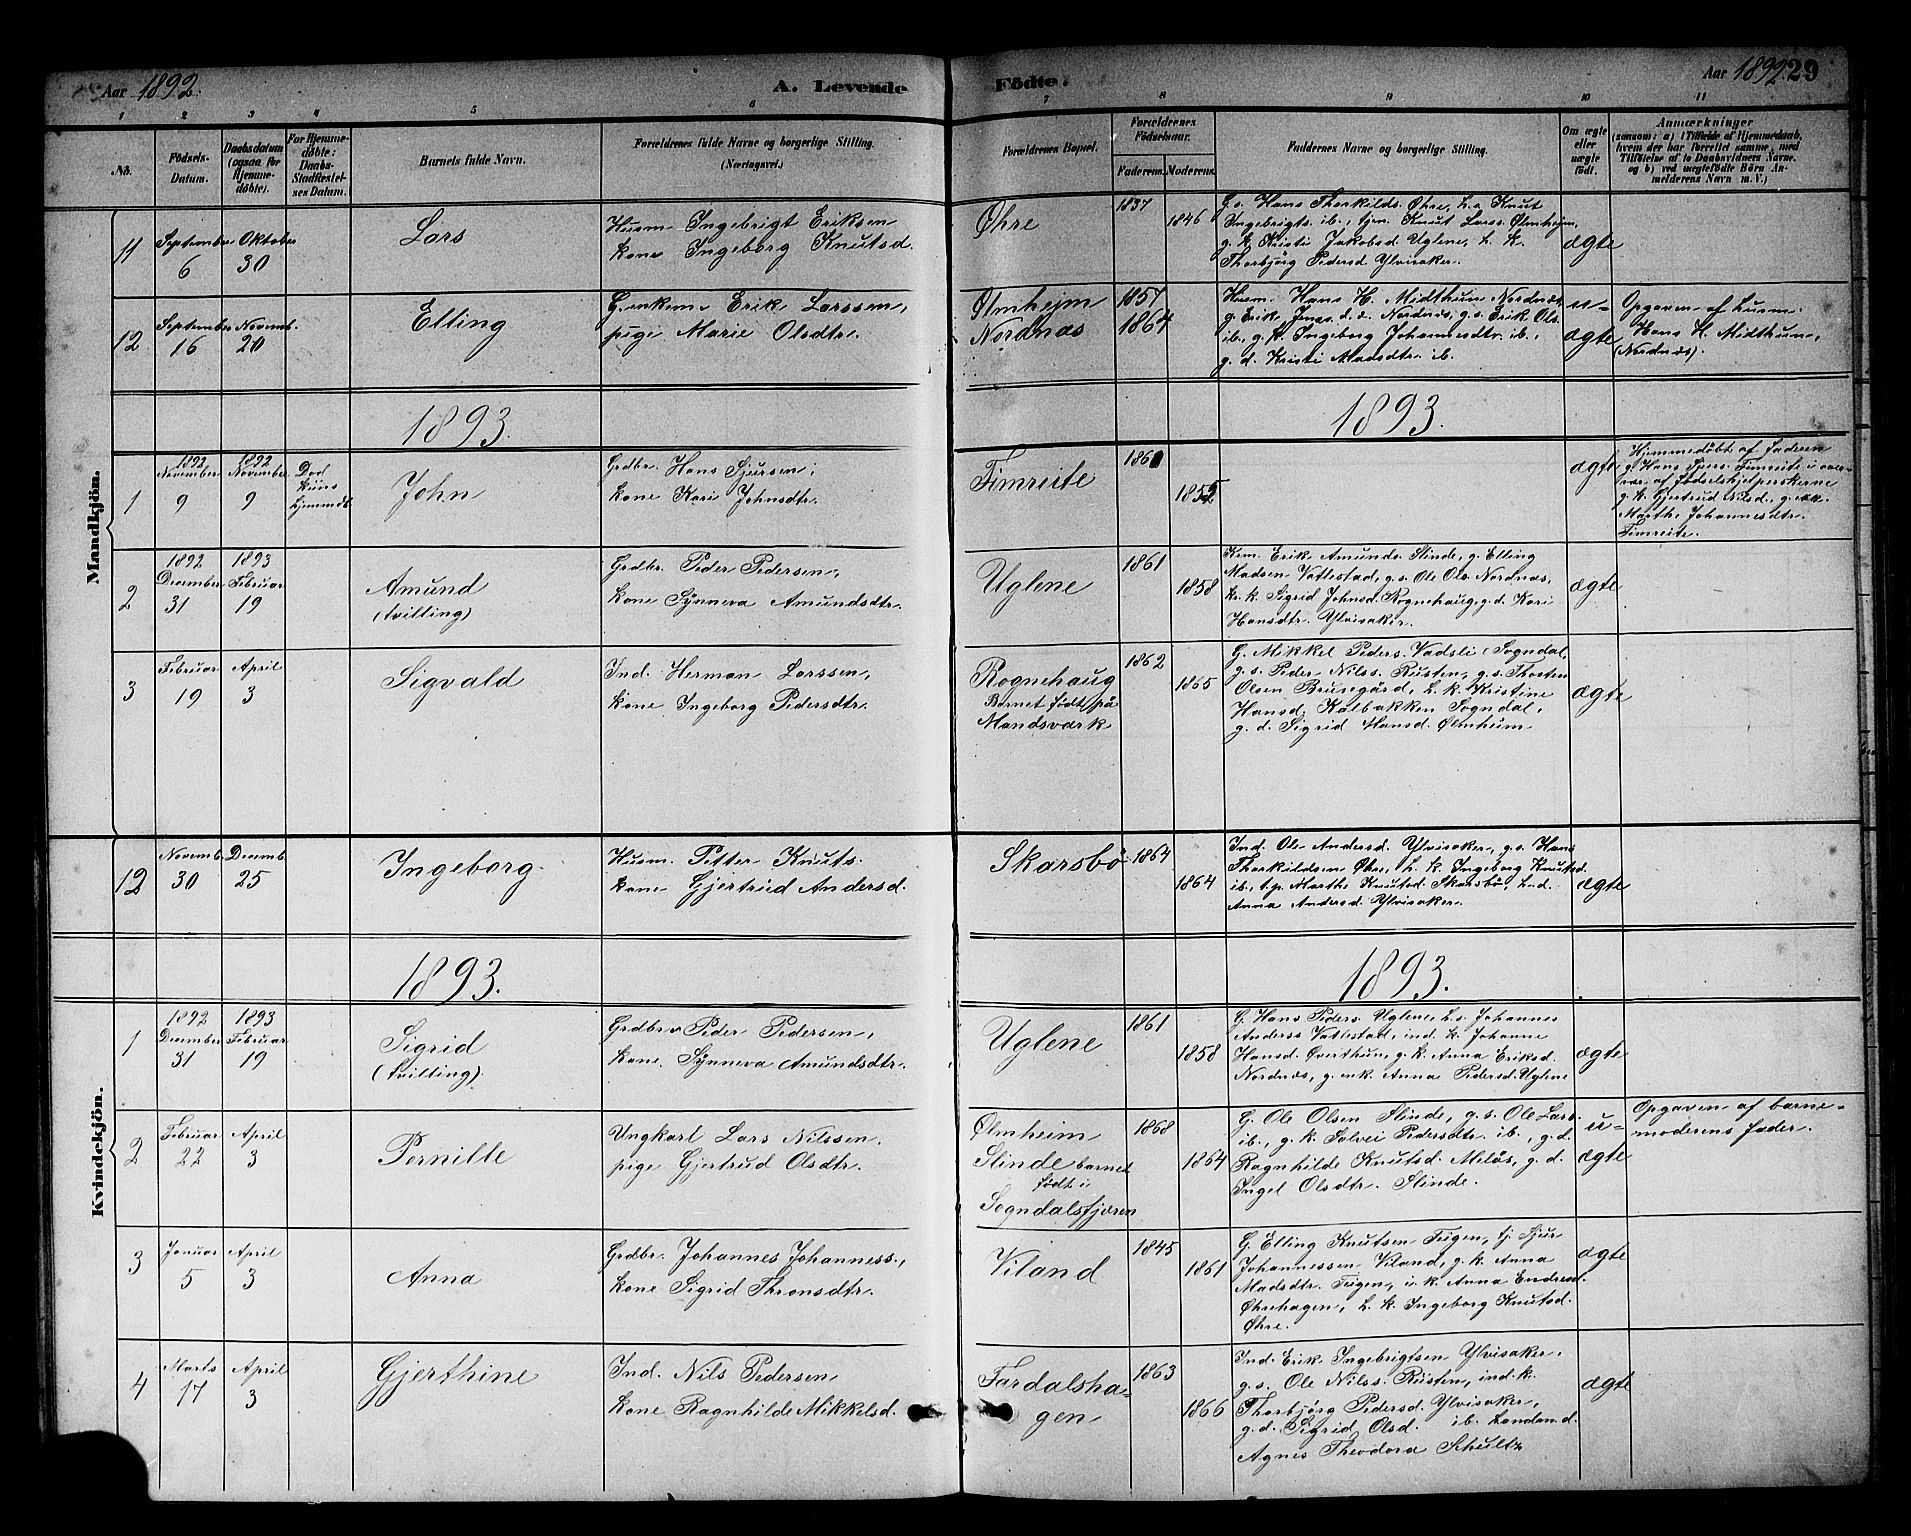 Aar 1892.
A. Levende
Födte.
Aar 1892. 29
1 2 3 4 5 6 7 8 9 10 11
No.
Födsels-
Datum.
Daabsdatum
(ogsaa for
Hjemme-
döbte).
For Hjemme-
döbte:
Daabs-
Stadfæstel-
ses Datum.
Barnets fulde Navn.
Forældrenes fulde Navne og borgerlige Stilling.
(Næringsvei.)
Forældrenes Bopæl.
Forældrenes
Födselsaar.
Faderens. Moderens.
Faddernes Navne og borgerlige Stilling.
Om ægte
eller
uægte
født.
Anmærkninger
(saasom: a) i Tilfælde af Hjemmedaab,
hvem der har forrettet samme, med
Tilföielse af to Daabsvidners Navne,
og b) ved uægtefödte Börn An-
melderens Navn m. V.)
Mandkjön.
11
September
6
Oktober
30
Lars
Husm. Ingebrigt Eriksen
kone Ingeborg Knutsd.
Øhre
1837
1846
G. s. Hans Thorkilds. Øhre, h. s. Knut
Ingebrigts. ib., tjen. Knut Larss. Ølmheim,
g. k. Kristi Jakobsd. Uglene, h. k.
Thorbjørg Pedersd. Ylvisaker.
ægte
12
September
16
Novemb.
20
Elling
G.enkem. Erik Larssen,
pige Marie Olsdtr.
Ølmhejm
Nordnæs
1857
1864
Husm. Hans H. Midthun Nordnæs,
g. Erik Jonas. d. æ. Nordnæs, g. s. Erik Ols.
ib., g. k. Ingeborg Johannesdtr. ib.,
g. d. Kristi Madsdtr. ib.
u-
ægte
Opgaven af husm.
Hans H. Midthun,
(Nordnæs).
1893.
1893.
1
1892
November
9
1892
November
9
Død
kuns
hjemmdb.
John
Grdbr. Hans Sjursen,
kone Kari Johnsdtr.
Fimreite
1860
1852
ægte
Hjemmedøbt af faderen
g. Hans Sjurs. Fimreite i over-
vær af fødselshjelperskerne
g. k. Gjertrud Nilsd., g. enk.
Marthe Johannesdtr.
Fimreite.
2
1892
December
31
1893
Februar
19
Amund
(tvilling)
Grdbr. Peder Pedersen,
kone Synneva Amundsdtr.
Uglene
1861
1858
Krm. Erik Amunds. Slinde, g. Elling
Madsen Vattestad, g. s. Ole Ols. Nordnæs,
kr. k. Sigrid Johnsd. Rognehaug, g. d. Kari
Hansdtr. Ylvisaker.
ægte
3
Februar
19
April
3
Sigvald
Ind. Herman Larssen,
kone Ingeborg Pedersdtr.
Rognehaug
Barnet født på
Mandsværk
1862
1865
G. Mikkel Peders. Vadsli Sogndal,
g. s. Peder Nilss. Rusten, g. s. Thosten
Olsen Brunegård, h. k. Kristine
Hansd. Kalbakken Sogndal,
g. d. Sigrid Hansd. Ølmhum
ægte
12
Novemb.
30
Decemb.
25
Ingeborg.
Husm. Petter Knuts.
kone Gjertrud Andersd.
Skarsbö
1864
1864
Ind. Ole Andersd. Ylvisaker, g. s. Hans
Thorkildsen Øhre, h. k. Ingeborg Knutsd.
ib., t. p. Marthe Knutsd. Skarsbö, h. d.
Anna Andersd. Ylvisaker.
ægte
1893.
1893.
Kvindekjön.
1
1892
December
31
1893
Februar
19
Sigrid
(tvilling).
Grdbr. Peder Pedersen,
kone Synneva Amundsdtr.
Uglene
1861
1858
G. Hans Peders. Uglene h. s. Johannes
Anderss Vattestad, ind. k. Johanne
Hansd. Øverthun, g. k. Anna Eriksd.
Nordnæs, g. enk. Anna Pedersd. Uglene
ægte
2
Februar
22
April
3
Pernille
Ungkarl Lars Nilssen.
pige Gjertrud Olsdtr.
Ølmheim
Slinde barnet
født i
Sogndalsfjæren
1868
1864
G. Ole Olsen Slinde, g. s. Ole Lars.
ib., g. k. Solvei Pedersdtr. ib., g. d.
Ragnhilde Knutsd. Meløs, g. d.
Ingel Olsdtr. Slinde.
u-
ægte
Opgaven af barne-
moderens fader.
3
Januar
5
April
3
Anna
Grdbr. Johannes Johanness.,
kone Sigrid Thronsdtr.
Viland
1845
1861
G. Elling Knutsen Fugen, tj. Sjur
Johannessen Viland, g. k. Anna
Madsdtr. Fugen, i. k. Anna Endresd.
Øhrehagen, h. k. Ingeborg Knutsd.
Øhre.
ægte
4
Marts
17
April
3
Gjerthine
Ind. Nils Pedersen
kone Ragnhilde Mikkelsd.
Fardalsha-
gen
1863
1866
Ind. Erik Ingebrigtsen Ylvisaker.
g. s. Ole Nilss. Rusten, ind. k.
Thorbjørg Pedersd. Ylvisaker,
g. d. Sigrid Olsd. ib. Landm. d.
Agnes Theodora Schultz
ægte